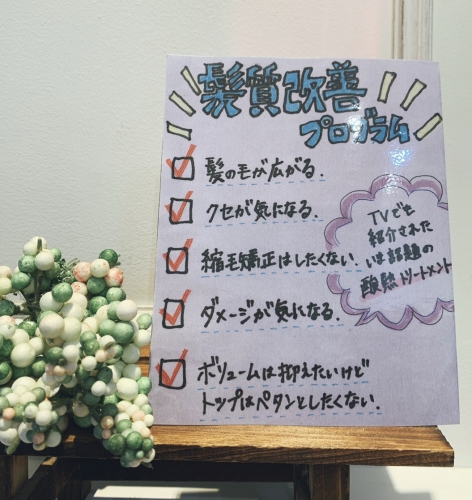 髪質改善
プログラム
髪の毛が広がる.
クセが気になる.
縮毛矯正はしたくない.
ダメージが気になる.
ボリュームは抑えたいけど
トップはペタンとしたくない.
TVでも
紹介された
いま話題の
酸熱トリートメント